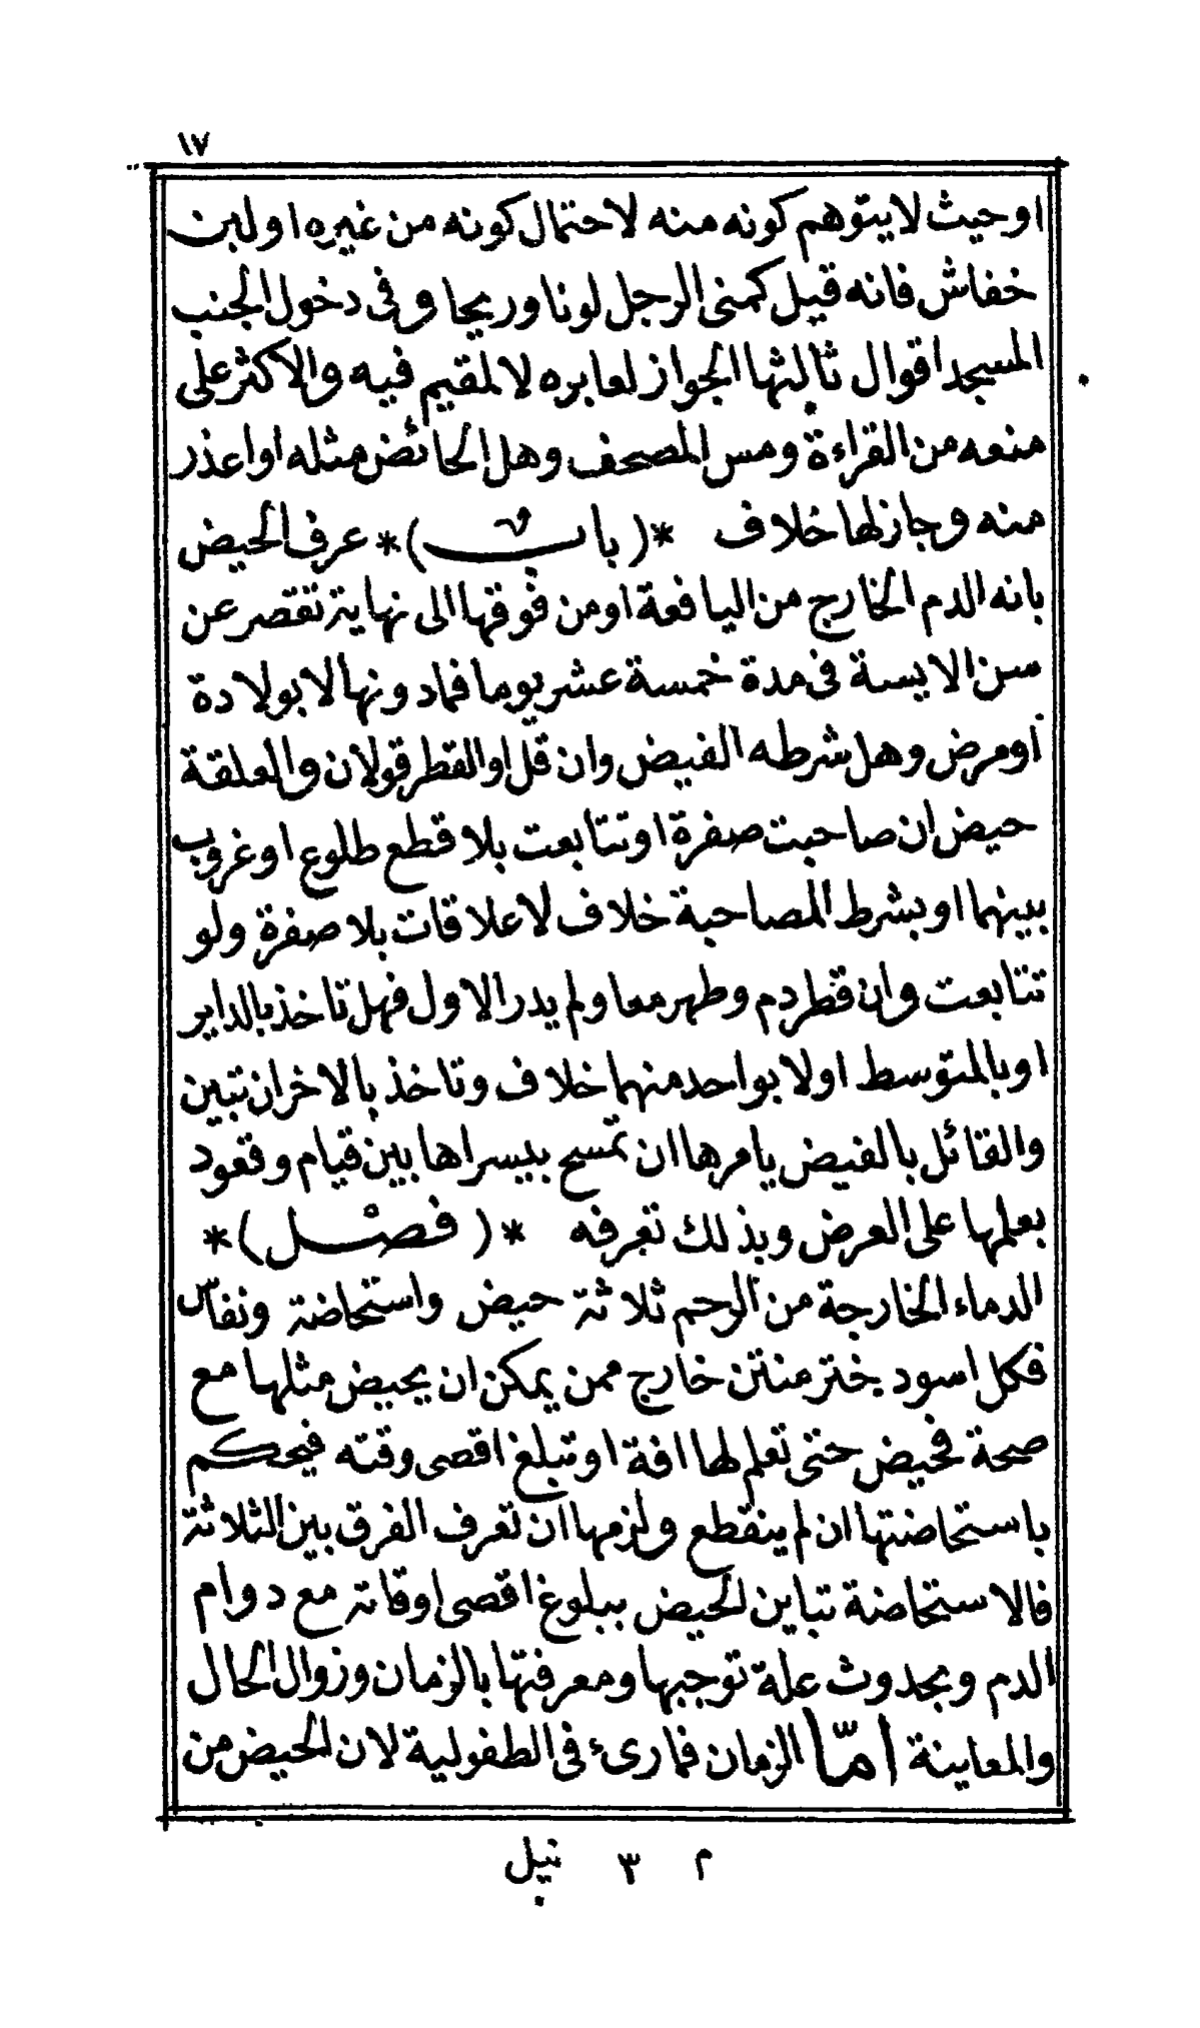 ١٧
اوحيث لايتوهم كونه منه لاحتمال كونه من غيره او لبن
خفاش فانه قيل كمنى الرجل لونا وريحا وفى دخول الجنب
المسجد اقوال ثالثها الجواز لعابره لالمقيم فيه والاكثر على
منعه من القراءة ومس المصحف وهل الحائض مثله او اعذر
منه وجاز لها خلاف *(باب)* عرف الحيض
بانه الدم الخارج من اليافعة او من فوقها الى نهاية تقصر عن
سن الايسة فى مدة خمسة عشر يوما فماد ونها لا بولادة
او مرض وهل شرطه الفيض وان قل او القطر قولان والعلقة
حيض ان صاحبت صفرة اوتتابعت بلا قطع طلوع او غروب
بينهما او بشرط المصاحبة خلاف لا علاقات بلا صفرة ولو
تتابعت وان قطر دم وطهر معا ولم يدر الاول فهل تاخذ بالداير
او بالمتوسط اولا بواحد منهما خلاف وتاخذ بالاخر ان تبين
والقائل بالفيض يامرها ان تمسح بيسراها بين قيام وقعود
بعلمها على العرض وبذلك تعرفه *(فصل)*
الدماء الخارجة من الرحم ثلاثة حيض واستحاضة ونفاس
فكل اسود خثر منتن خارج ممن يمكن ان يحيض مثلها مع
صحة فحيض حتى تعلم لها افة او تبلغ اقصى وقته فيحكم
باستحاضتها ان لم ينقطع ولزمها ان تعرف الفرق بين الثلاثة
فالاستحاضة تباين الحيض ببلوغ اقصى اوقاته مع دوام
الدم وبحدوث علة توجبها ومعرفتها بالزمان وزوال الحال
والمعاينة امّا الزمان فمارىء فى الطفولية لان الحيض من
م ٣ نيل